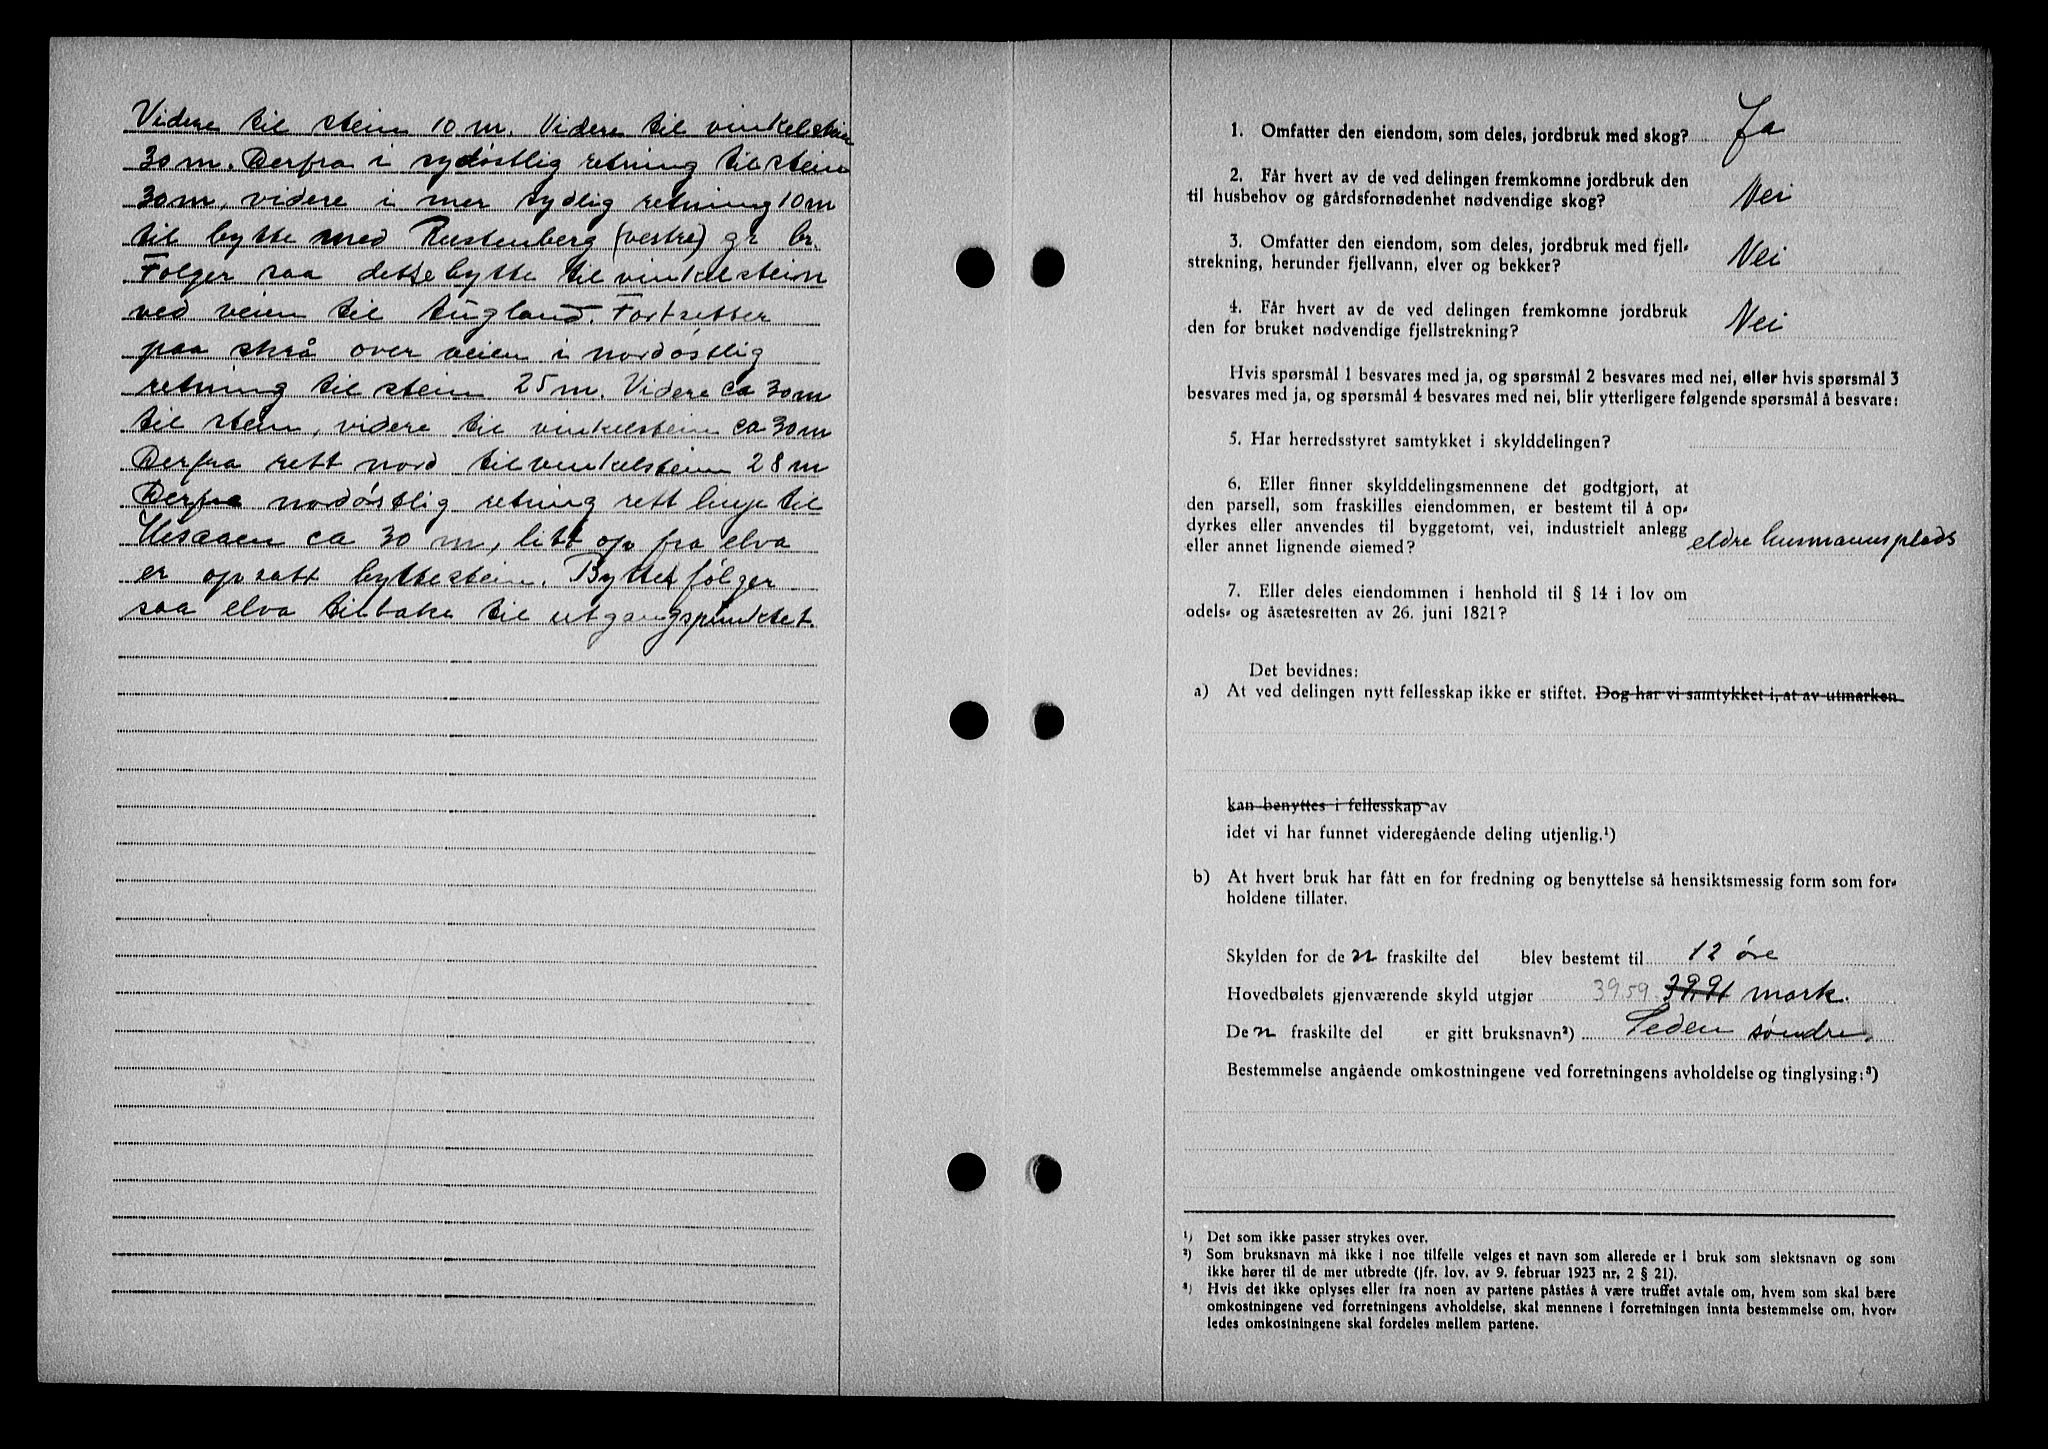 Videre til stein 10 m. Videre til vinkelstein
30 m. Derfra i sydøstlig retning til stein
30 m, videre i mer sydlig retning 10 m
til bytte med Rustenberg (vestre) gr br.
Følger saa dette bytte til vinkelstein
ved veien til Augland. Fortsetter
paa skrå over veien i nordøstlig
retning til stein 25 m. Videre ca 30 m
til stein, videre til vinkelstein ca 30 m
Derfra rett nord til vinkelstein 28 m
Derfra nordøstlig retning rett linje til
ca 30 m, litt op fra elva
er opsatt byttestein. Byttet følger
saa elva tilbake til utgangspunktet.
1. Omfatter den eiendom, som deles, jordbruk med skog? Ja
2. Får hvert av de ved delingen fremkomne jordbruk den
til husbehov og gårdsfornødenhet nødvendige skog? Nei
3. Omfatter den eiendom, som deles, jordbruk med fjell-
strekning, herunder fjellvann, elver og bekker? Nei
4. Får hvert av de ved delingen fremkomne jordbruk
den for bruket nødvendige fjellstrekning? Nei
Hvis spørsmål 1 besvares med ja, og spørsmål 2 besvares med nei, eller hvis spørsmål 3
besvares med ja, og spørsmål 4 besvares med nei, blir ytterligere følgende spørsmål å besvare:
5. Har herredsstyret samtykket i skylddelingen?
6. Eller finner skylddelingsmennene det godtgjort, at
den parsell, som fraskilles eiendommen, er bestemt til å op-
dyrkes eller anvendes til byggetomt, vei, industrielt anlegg
eller annet lignende øiemed? eldre husmannsplads
7. Eller deles eiendommen i henhold til § 14 i lov om
odels- og åsætesretten av 26. juni 1821?
Det bevidnes:
a) At ved delingen nytt fellesskap ikke er stiftet. Dog har vi samtykket i, at av utmarken
kan benyttes i fellesskap av
idet vi har funnet videregående deling utjenlig.¹)
b) At hvert bruk har fått en for fredning og benyttelse så hensiktsmessig form som for-
holdene tillater.
Skylden for de n fraskilte del blev bestemt til 12 øre
Hovedbølets gjenværende skyld utgjør 39.59 39.91 mark.
De n fraskilte del er gitt bruksnavn²) Leden søndre.
Bestemmelse angående omkostningene ved forretningens avholdelse og tinglysing:³)
¹) Det som ikke passer strykes over.
²) Som bruksnavn må ikke i noe tilfelle velges et navn som allerede er i bruk som slektsnavn og som
ikke hører til de mer utbredte (jfr. lov. av 9. februar 1923 nr. 2 § 21).
³) Hvis det ikke oplyses eller fra noen av partene påståes å være truffet avtale om, hvem som skal bære
omkostningene ved forretningens avholdelse, skal mennene i forretningen innta bestemmelse om, hvor-
ledes omkostningene skal fordeles mellem partene.